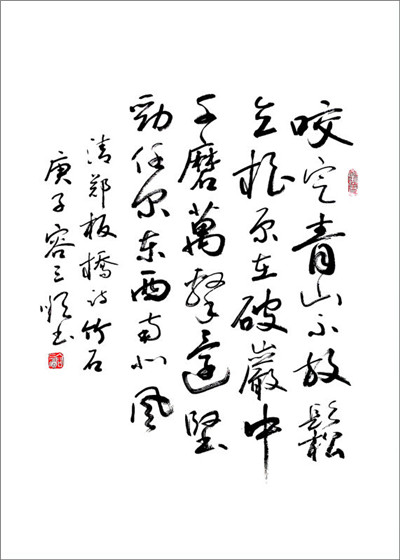 咬定青山不放鬆
立根原在破巖中
千磨萬擊還堅
勁任尔东西南北風
清郑板橋诗竹石
庚子容三书